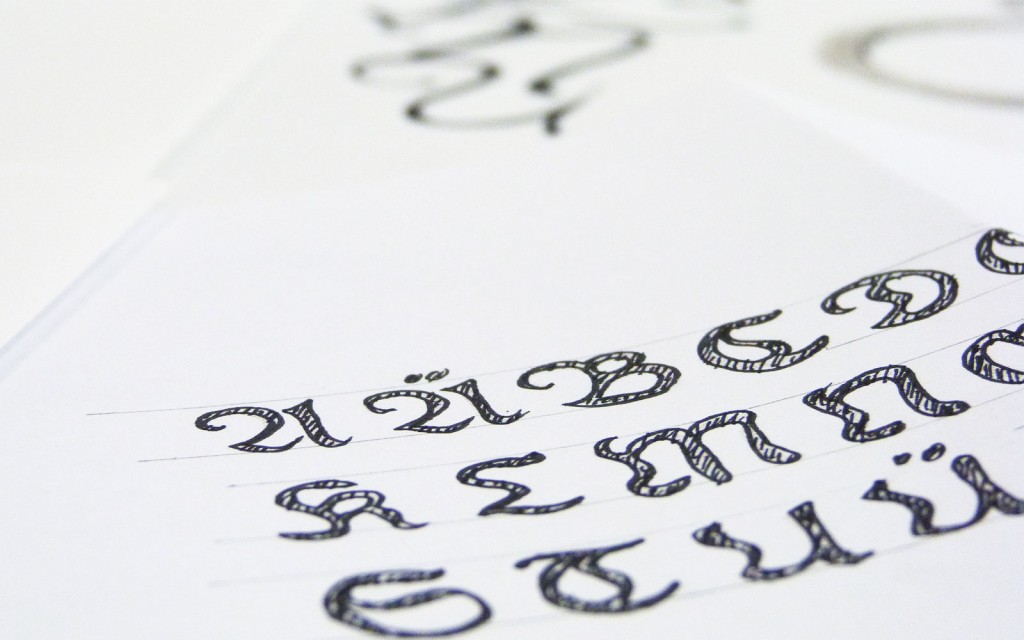 A Ä B C D
K L M N O
S T U Ü